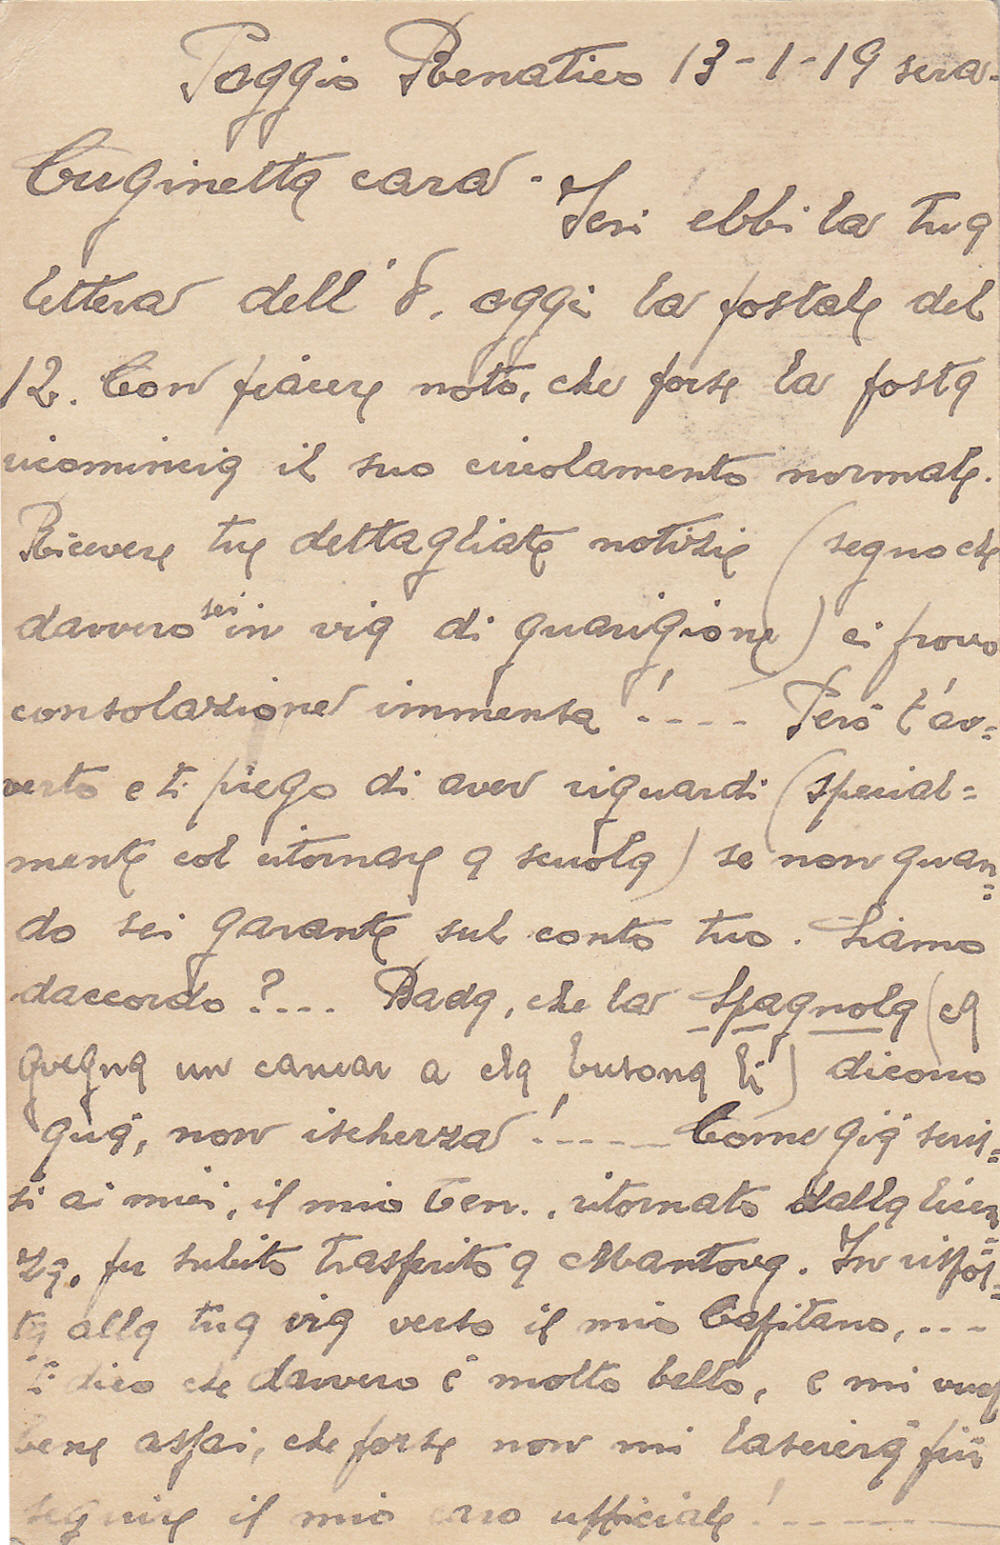 Poggio Renatico 13-1-19 sera.
Cuginetta cara - Ieri ebbi la tua
lettera dell'8, oggi la postale del
12. Con piacere noto, che forse la posta
ricomincia il suo circolamento normale.
Ricevere tue dettagliate notizie (segno che
davvero sei in via di guarigione) ci provo
consolazione immensa!.... Però t'av=
verto e ti priego di aver riguardi (special=
mente col ritornare a scuola) se non quan=
do sei garante sul conto tuo. Siamo
daccordo?... Bada, che la Spagnola (
un a li) dicono
qua, non ischerza!..... Come già scris=
si ai miei, il mio Ten., ritornato dalla licen=
za, fu subito trasferito a Mantova. In rispos=
ta alla tua verso il mio Capitano,...
ti dico che davvero è molto bello, e mi vuol
bene assai, che forse non mi lascierà più
seguire il mio caro ufficiale!.....